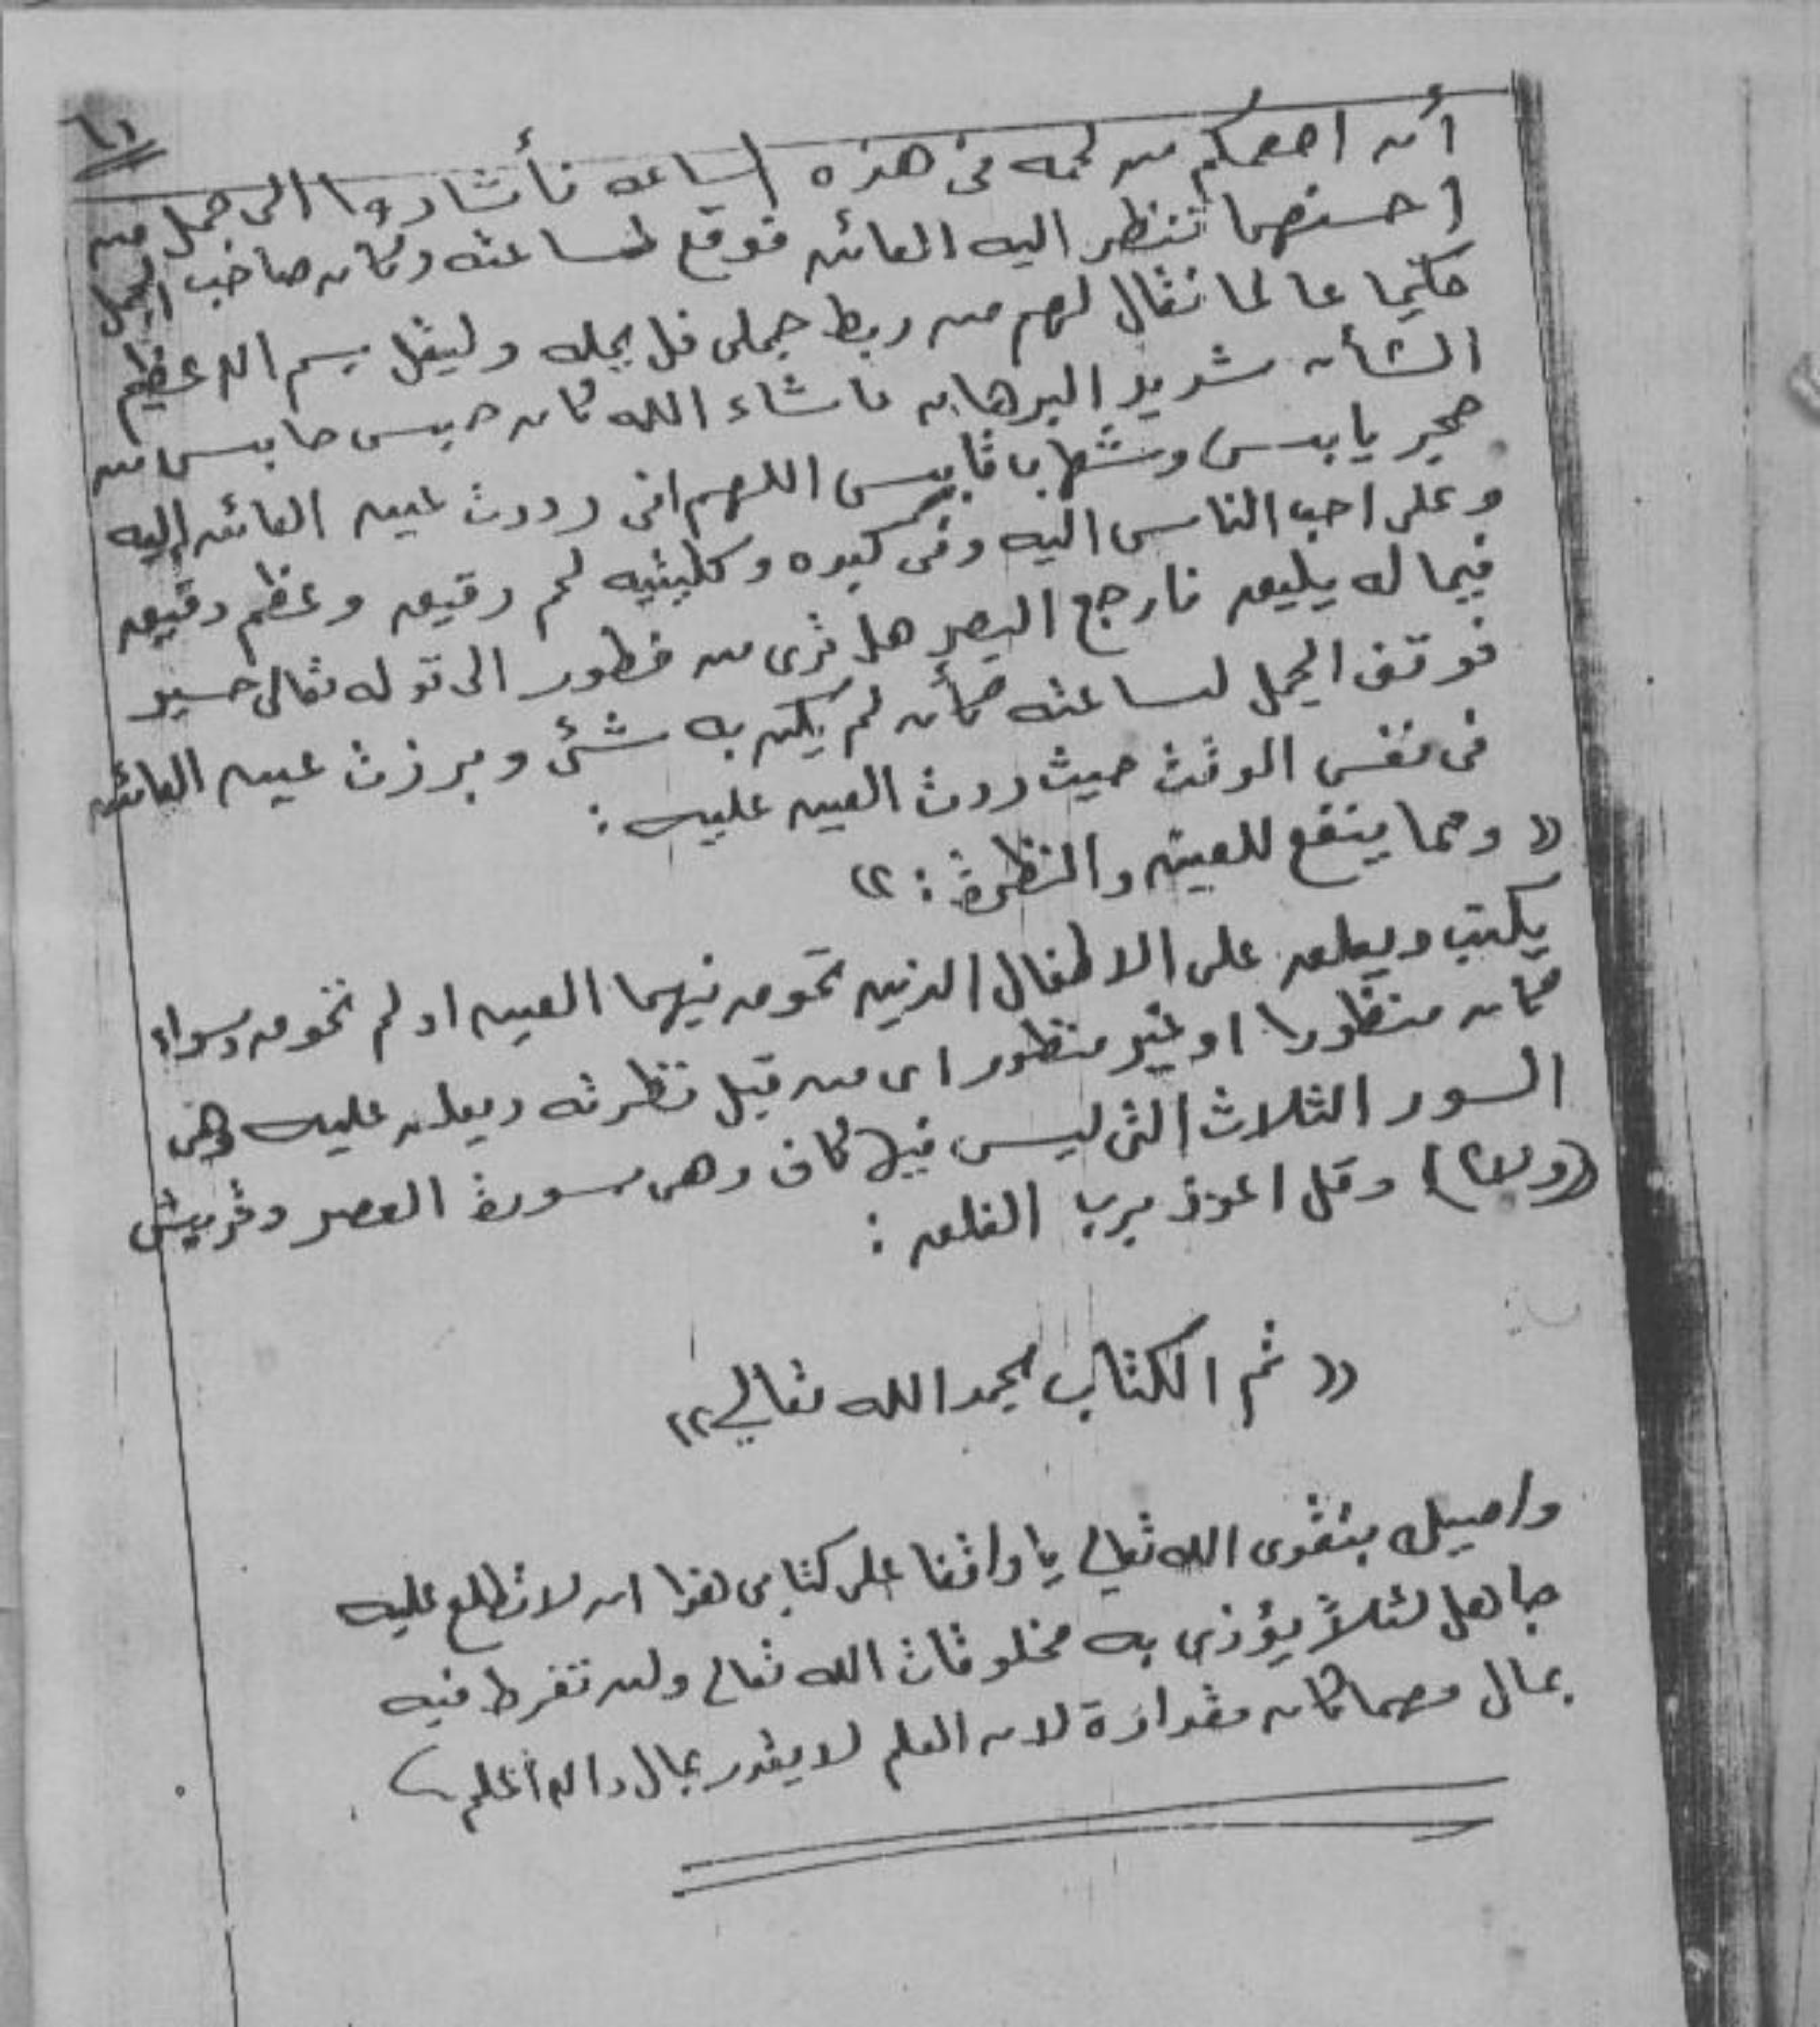 ٦١
أن اطعمكم من لحمه فى هذه الساعه فأشاروا الى جمل من
احسنهما فنظر اليه العائن فوقع لساعته وكان صاحب الجمل
حكيما عالما فقال لهم من ربط جملى فل يحله وليقل بسم الله عظيم
الشأن شديد البرهان ماشاء الله كان حبس حابس من
حجر يابس وشهاب قابس اللهم انى رددت عين العائن إليه
وعلى احب الناس اليه وفى كبده وكليتيه لحم رقيق وعظم دقيق
فيما له يليق فارجع البصر هل ترى من فطور الى قوله تعالى حسير
فوقف الجمل لساعته كأن لم يكن به شئ وبرزت عين العائن
فى نفس الوقت حيث ردت العين عليه :
« ومما ينفع للعين والنظرة : »
يكتب ويعلق على الاطفال الذين تحوم فيهما العين او لم تحوم وسواء
كان منظورا او غير منظور اى من قبل نظرته ويعلق عليه وهى
السور الثلاث التى ليس فيها كاف وهى سورة العصر وقريش
(( ولا )) وقل اعوذ برب الفلق :
« تم الكتاب بحمد الله تعالي »
واصيك بتقوى الله تعالي يا واقفا على كتابى هذا ان لا تطلع عليه
جاهل لئلاً يؤذى به مخلوقات الله تعالى ولن تفرط فيه
بمال مهما كان مقدارة لان العلم لا يقدر بمال والله أعلم